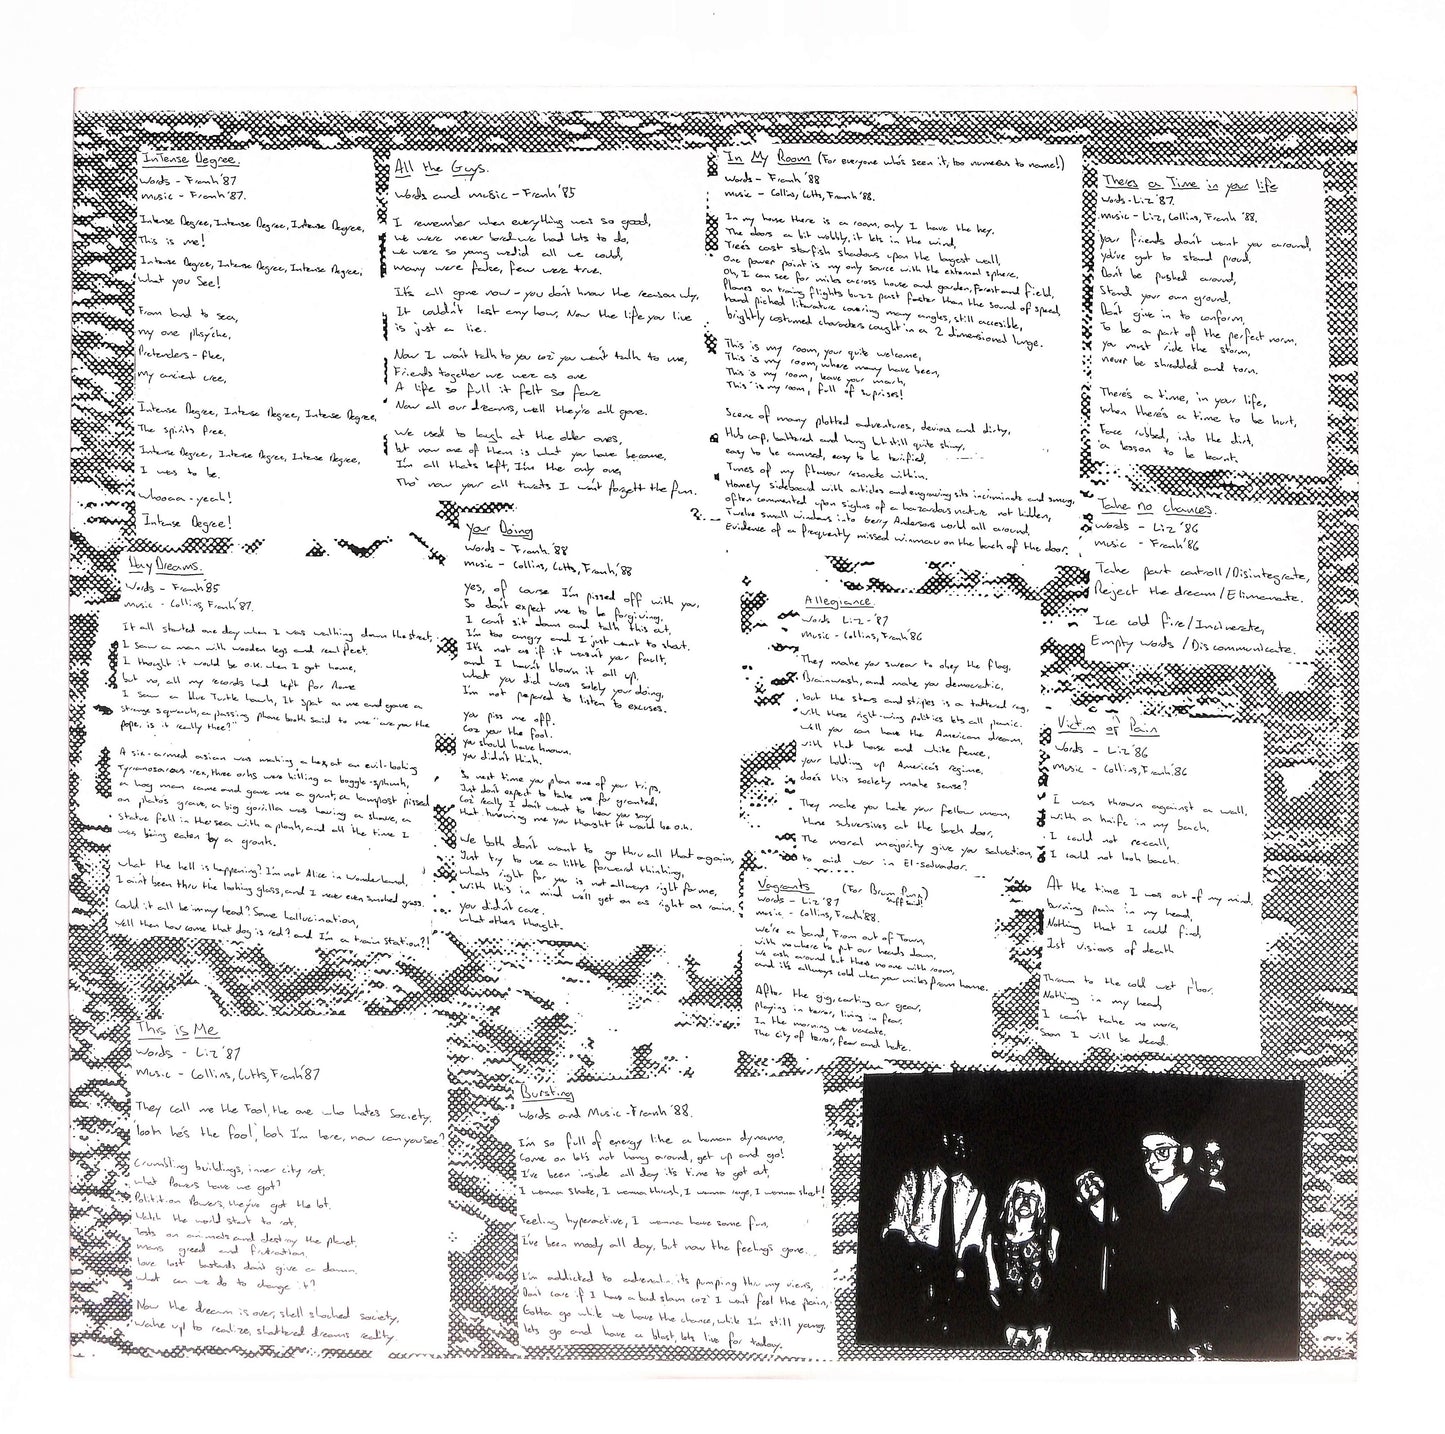 Intense Degree.
Words - Frank '87
Music - Frank '87.
Intense Degree, Intense Degree, Intense Degree,
This is me!
Intense Degree, Intense Degree, Intense Degree,
What you See!
From land to sea,
my one phsyche,
Pretenders - flee,
My ancient cree,
Intense Degree, Intense Degree, Intense Degree,
The spirits free,
Intense Degree, Intense Degree, Intense Degree,
I was to be.
Whoaaa - yeah!
Intense Degree!
Day Dreams.
Words - Frank '85
music - Collins, Frank '87.
It all started one day when I was walking down the street,
I saw a man with wooden legs and real feet.
I thought it would be o.k. when I got home,
but no, all my records had left for Rome
I saw a blue Turtle hawk, It spat on me and gave a
strange squawk, a passing phone booth said to me "are you the
pope, is it really thee?"
A six-armed asian was making a hex, at an evil-looking
Tyrannosaraus-rex, three orks were killing a boggle-
a hog man came and gave me a grunt, a lampost pissed
on plato's grave, a big gorilla was having a shave, a
statue fell in the sea with a plonk, and all the time I
was being eaten by a gronk.
What the hell is happening? I'm not Alice in Wonderland,
I ain't been thru the looking glass, and I never even smoked grass.
Could it all be in my head? Some hallucination,
Well then how come that dog is red? and I'm a train station?!
This is Me
Words - Liz '87
Music - Collins, Cutts, Frank '87
They call me the Fool, the one who hates Society,
'look he's the fool', look I'm here, now can you see?
Crumbling buildings, inner city rot.
What Powers have we got?
Politition Powers, they've got the lot.
Watch the world start to rot,
Tests on animals and destroy the planet,
mans greed and
love lost bastards don't give a damn.
What can we do to change it?
Now the dream is over, shell shocked society,
Wake up to realize, shattered dreams reality.
All the Guys.
Words and music - Frank '85
I remember when everything was so good,
we were never bored we had lots to do,
we were so young we did all we could,
many were false, few were true.
It's all gone now - you don't know the reason why,
It couldn't last any hour, Now the life you live
is just a lie.
Now I won't talk to you coz' you won't talk to me,
Friends together we were as one
A life so full it felt so free
Now all our dreams, well they're all gone.
We used to laugh at the older ones,
but now one of them is what you have become,
I'm all thats left, I'm the only one,
Tho' now your all twats I won't forgett the fun.
Your Doing
Words - Frank '88
music - Collins, Cutts, Frank '88
Yes, of course I'm pissed off with you,
So don't expect me to be forgiving,
I can't sit down and talk this out,
I'm too angry and I just want to shout.
It's not as if it wasn't your fault,
and I haven't blown it all up,
what you did was solely your doing,
I'm not prepared to listen to excuses.
You piss me off.
Coz you the fool.
You should have known.
You didn't think.
So next time you plan one of your trips,
Just don't expect to take me for granted,
Coz' really I don't want to hear you say,
that knowing me you thought it would be o.k.
We both don't want to go thru all that again,
Just try to use a little forward thinking,
Whats right for you is not allways right for me,
With this in mind we'll get on as right as rain.
You didn't care.
What others thought.
Bursting
Words and Music - Frank '88.
I'm so full of energy like a human dynamo,
Come on let's not hang around, get up and go!
I've been inside all day it's time to get out,
I wanna skate, I wanna thrash, I wanna rage, I wanna shout!
Feeling hyperactive, I wanna have some fun,
I've been moody all day, but now the feelings gone.
I'm addicted to adrenalin, its pumping thru my viens,
Don't care if I have a bad slam coz' I won't feel the pain,
Gotta go while we have the chance, while I'm still young,
lets go and have a blast, lets live for today.
In My Room (For everyone who's seen it, too numerous to name!)
Words - Frank '88
music - Collins, Cutts, Frank '88.
In my house there is a room, only I have the key.
The doors a bit wobbly, it lets in the wind,
Tree's cast starfish shadows upon the largest wall,
One power point is my only source with the external sphere,
Oh, I can see for miles across house and garden, forest and field,
Planes on traing flights buzz past faster than the sound of speed,
hand picked literature covering many angles, still accesible,
brightly costumed characters caught in a 2 dimensional lunge.
This is my room, your quite welcome,
This is my room, where many have been,
This is my room, leave your mark,
This is my room, full of suprises!
Scene of many plotted adventures, devious and dirty,
Hub cap, battered and hung but still quite shiny,
easy to be amused, easy to be terrified,
Tunes of my flavour resonate within.
Homely sideboard with articles and engraving sits incriminate and smug,
often commented upon sighns of a hazardous nature not hidden,
Twelve small windows into Gerry Andersons world all around,
Evidence of a frequently missed on the back of the door.
Allegiance.
Words Liz - '87
Music - Collins, Frank '86
They make you swear to obey the flag,
Brainwash, and make you democratic,
but the stars and stripes is a tattered rag,
with those right-wing politics lets all panic.
Well you can have the American dream,
with that house and white fence,
your holding up America's regime,
does this society make sense?
They make you hate your fellow man,
those subversives at the back door,
The moral majority give you salvation,
to aid war in El-salvador.
Vagrants (For Brum Punx)
Words - Liz '87
music - Collins, Frank '88.
We're a band, From out of Town,
with nowhere to put our heads down,
We ask around but theres no one with room,
and it's allways cold when your miles from home.
After the gig, carting our gear,
Playing in terror, living in fear,
In the morning we vacate,
The city of terror, fear and hate.
Theres a Time in your life
Words - Liz '87.
music - Liz, Collins, Frank '88.
Your friends don't want you around,
you've got to stand proud,
Don't be pushed around,
Stand your own ground,
Don't give in to conform,
To be a part of the perfect norm,
You must ride the storm,
never be shredded and torn.
There's a time, in your life,
When there's a time to be hurt,
Face rubbed, into the dirt,
a lesson to be learnt.
Take no chances.
Words - Liz '86
music - Frank '86
Take part controll / Disintegrate,
Reject the dream / Elimenate.
Ice cold fire / Incinerate,
Empty words / Discommunicate.
Victim of Pain
Words - Liz '86
Music - Collins, Frank '86
I was thrown against a wall,
With a knife in my back,
I could not recall,
I could not look back.
At the time I was out of my mind,
burning pain in my head,
Nothing that I could find,
Just visions of death
Thrown to the cold wet floor,
Nothing in my head,
I can't take no more,
Soon I will be dead.